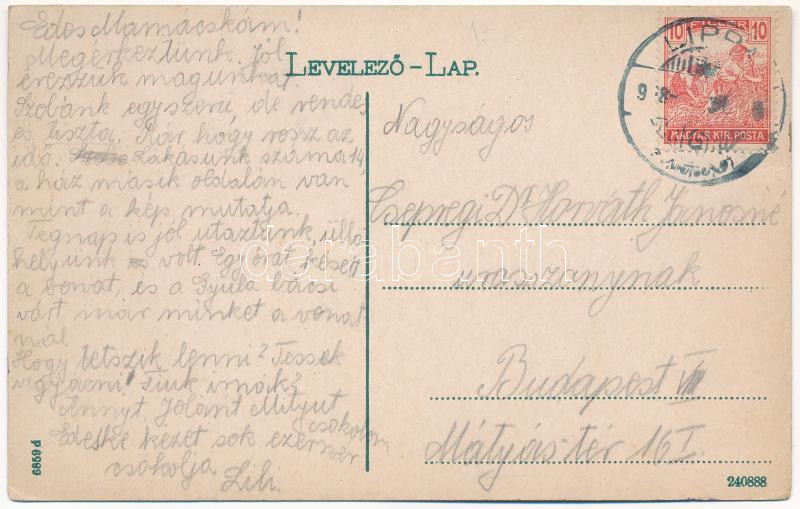 Édes Mamácskám!
Megérkeztünk. Jól
érezzük magunkat.
Szobánk egyszerű de rendes
és tiszta. Kár hogy rossz az
idő. Lakásunk száma 14,
a ház másik oldalán van
mint a kép mutatja.
Tegnap is jól utaztunk, ülő
helyünk volt. Egy órát késett
a vonat, és a Gyula bácsi
várt már minket a vonat
nál
Hogy tetszik lenni? Tessék
vigyázni! Fiúk írnak?
Annyt Jolánt Mityut
csókolom
Edeske kezét sok ezerszer
csókolja Lili.
6859 P
LEVELEZŐ-LAP.
Nagyságos
Csepregi Dr Horváth Jánosné
úrasszonynak
Budapest VIII
Mátyás-tér 16 I.
240888
10 FILLÉR 10
MAGYAR KIR. POSTA
LIPÓ
darabanth